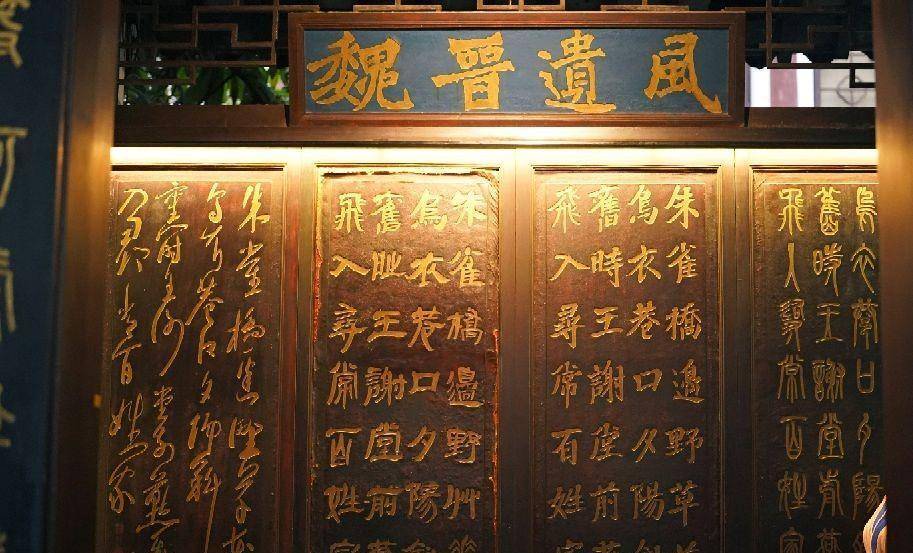 魏晉遺風
烏衣巷口夕陽
舊時王謝堂前
飛入尋常百姓家
朱雀橋邊野草
烏衣巷口夕陽
舊時王謝堂前
飛入尋常百姓
朱雀橋邊野艸花
烏衣巷口夕陽斜
舊時王謝堂前燕
飛入尋常百姓家
朱雀橋邊野草花
烏衣巷口夕陽斜
舊時王謝堂前燕
飛入尋常百姓家